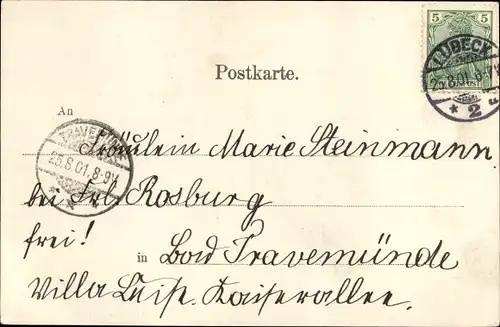 5 5
LÜBECK
25.8.01.8-9V
* 2 a
Postkarte.
An
TRAVEMÜNDE
25.8.01.8-9V
* *
Fräulein Marie Steinmann.
bei Frl. Rosburg
frei!
in Bad Travemünde
Villa Luise. Kaiserallee.